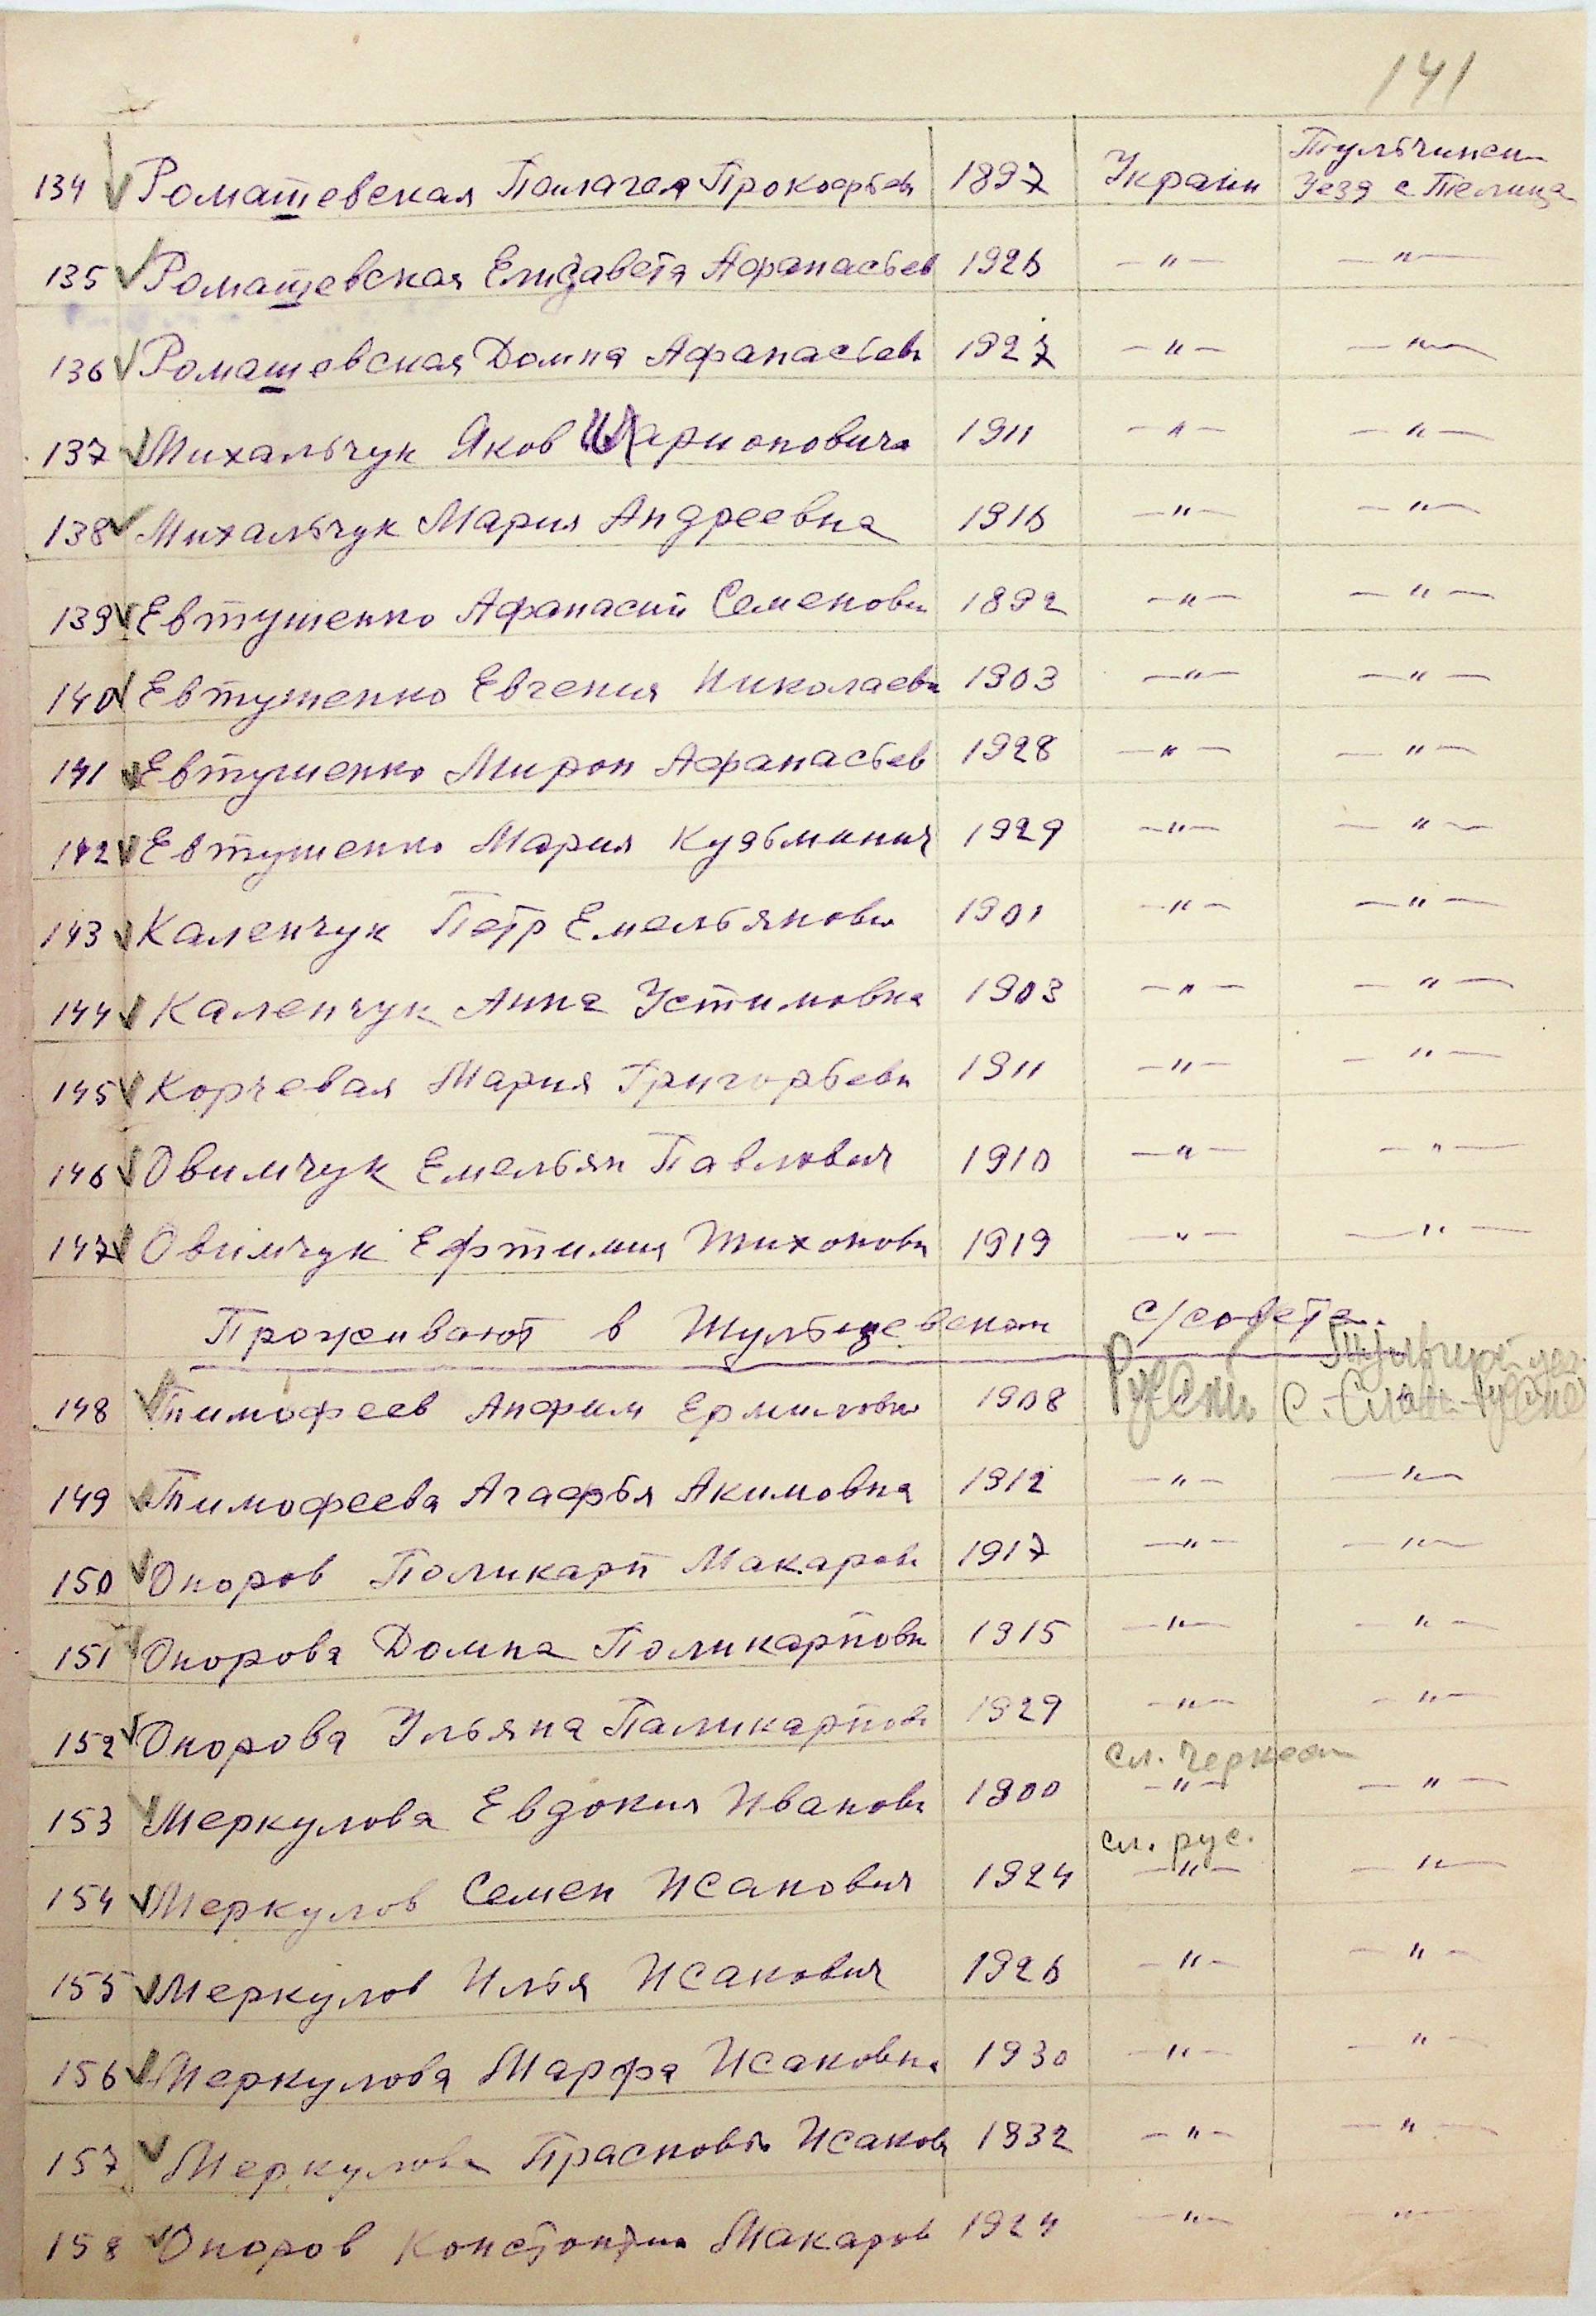 141
Тульчинск
134 Ромашевская Палагея Прокофьев 1897 Украин Уезд с. Телица
135 Ромашевская Елизавета Афанасьев 1926 -"- -"-
136 Ромашевская Домна Афанасьев 1927 -"- -"-
137 Михальчук Яков Иларионович 1911 -"- -"-
138 Михальчук Мария Андреевна 1916 -"- -"-
139 Евтушенко Афанасий Семенови 1892 -"- -"-
140 Евтушенко Евгения Николаевн 1903 -"- -"-
141 Евтушенко Мирон Афанасьев 1928 -"- -"-
142 Евтушенко Мария Кузьминич 1929 -"- -"-
143 Каленчук Петр Емельянови 1901 -"- -"-
144 Каленчук Анна Устимовна 1903 -"- -"-
145 Корчевая Мария Григорьевн 1911 -"- -"-
146 Овимчук Емельян Павлович 1910 -"- -"-
147 Овимчук Ефтимия Тихоновн 1919 -"- -"-
Проживают в с/совете.
148 Тимофеев Анфим Ермилови 1908 с.
149 Тимофеева Агафья Акимовна 1912 -"- -"-
150 Опоров Поликарп Макаров 1917 -"- -"-
151 Опорова Домна Поликарповн 1915 -"- -"-
152 Опорова Ульяна Паликарпов 1929 -"- -"-
сл. Черкес
153 Меркулова Евдокия Ивановн 1900 -"- -"-
сл. рус.
154 Меркулов Семен Исакович 1924 -"- -"-
155 Меркулов Илья Исакович 1926 -"- -"-
156 Меркулова Марфа Исаковна 1930 -"- -"-
157 Меркулова Прасковья Исаков 1932 -"- -"-
158 Опоров Констонтин Макаров 1924 -"- -"-